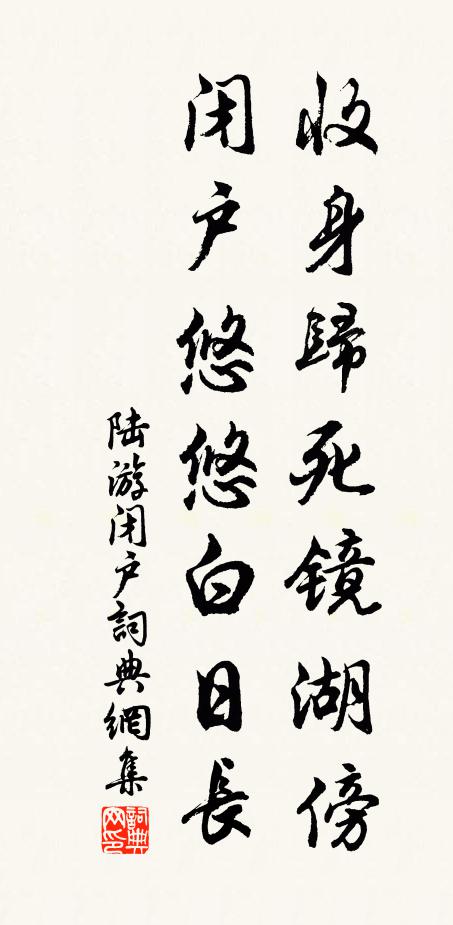 收身歸死镜湖傍
闭户悠悠白日長
陆游闭户詞典網集
詞典网印